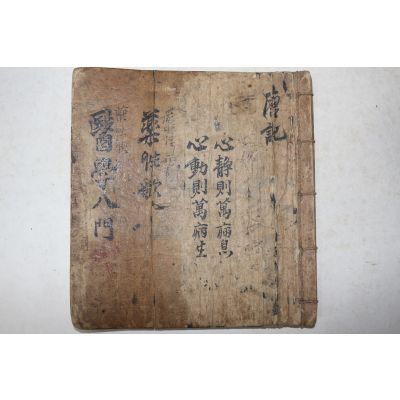 唐記
心静則萬病息
心動則萬病生
藥性歌
醫學入門